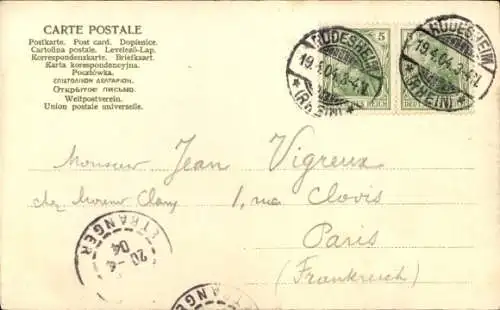 CARTE POSTALE
Postkarte. Post card. Dopisnice.
Cartolina postale. Levelező-Lap.
Korrespondenzkarte. Briefkaart.
Karta korespondencyjna.
Pocztówka.
ΕΠΙΣΤΟΛΙΚΟΝ ΔΕΛΤΑΡΙΟΝ.
Открытое письмо.
Weltpostverein.
Union postale universelle.
5
DEUTSCHES REICH
RÜDESHEIM
19.4.04.3-4N.
*(RHEIN)*
RÜDESHEIM
19.4.04.3-4N.
*(RHEIN)*
Monsieur Jean Vigreux
chez 1, rue Clovis
Paris
(Frankreich)
ETRANGER
20-4
04
ETRANGER